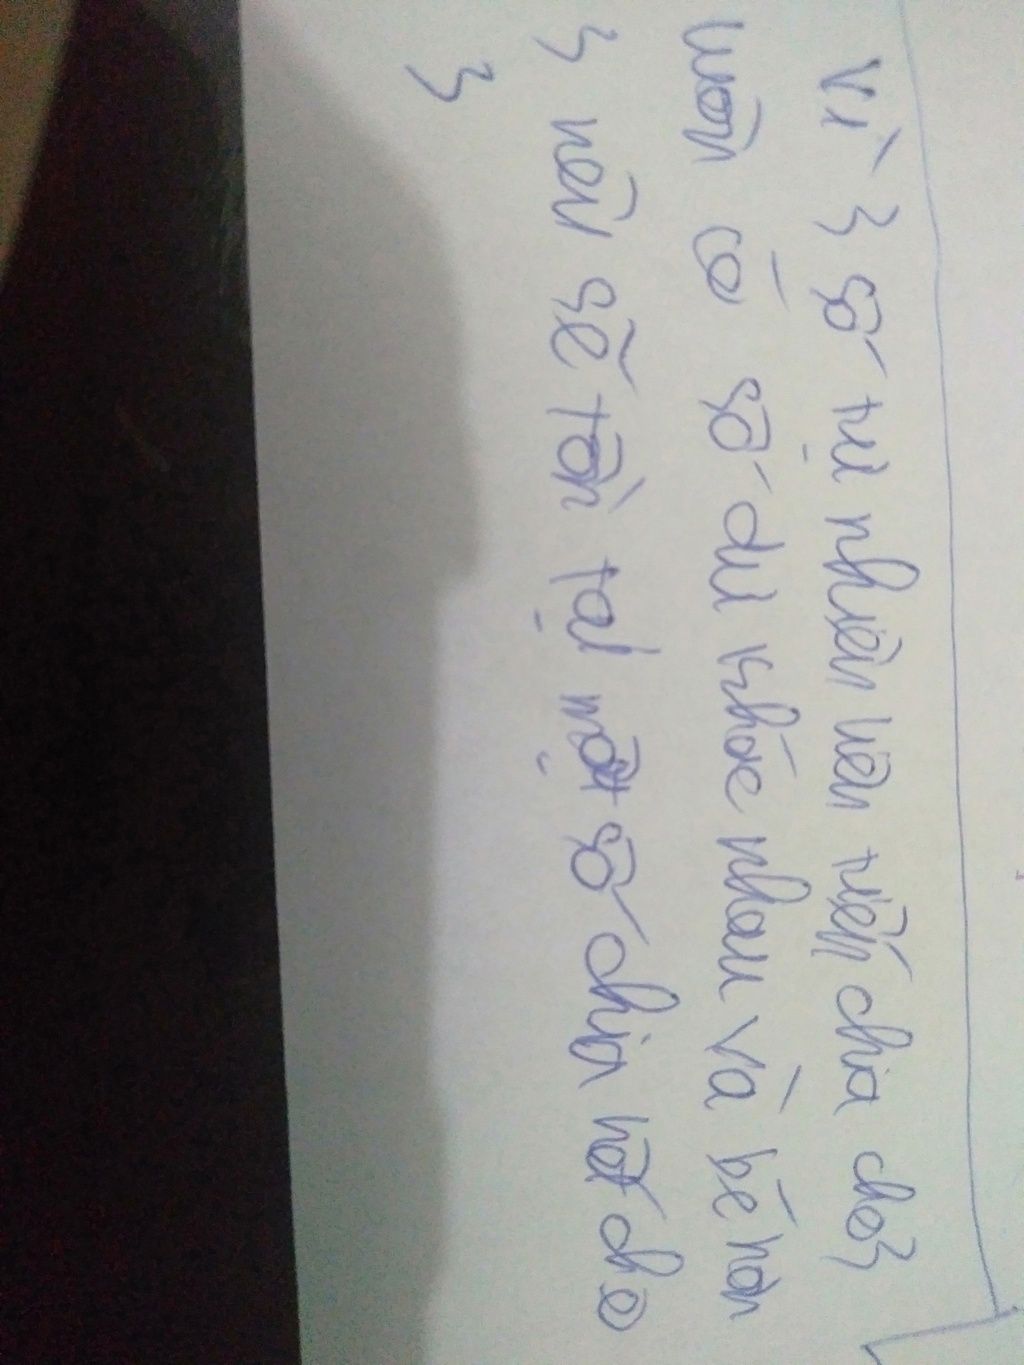 Vì 3 số tự nhiên liên tiếp chia cho 3
luôn có số dư khác nhau và bé hơn
3 nên sẽ tồn tại một số chia hết cho
3